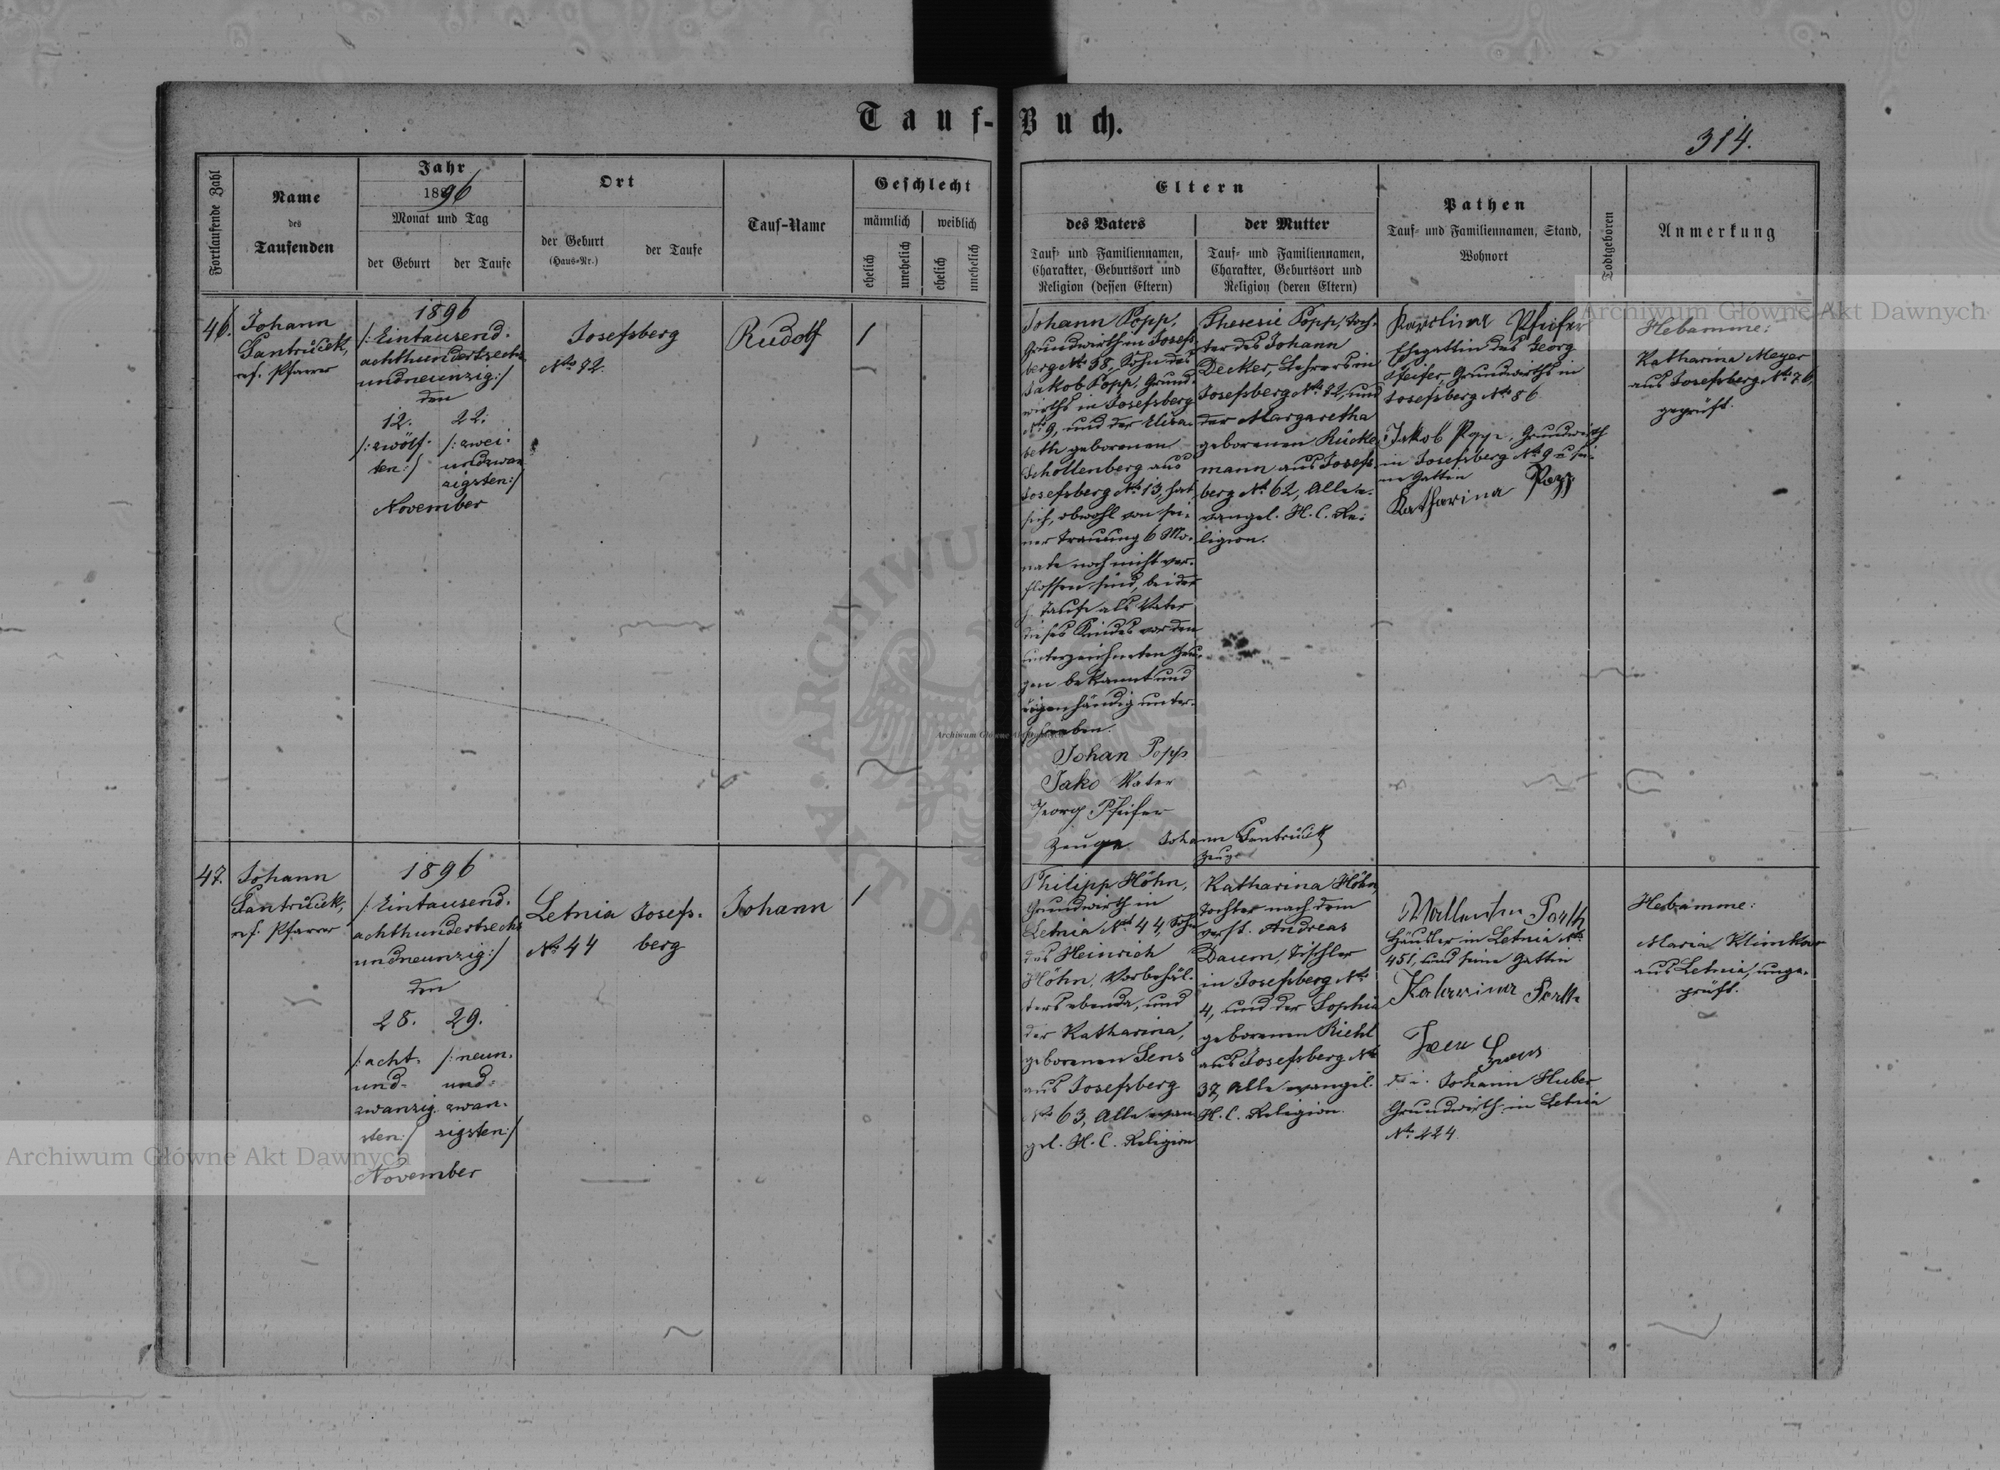 Tauf-Buch.
314.
Fortlaufende Zahl
Name
des
Taufenden
Jahr
1896
Monat und Tag
der Geburt
der Taufe
Ort
der Geburt
(Haus-Nr.)
der Taufe
Tauf-Name
Geschlecht
männlich
weiblich
ehelich
unehelich
ehelich
unehelich
Eltern
des Vaters
Tauf- und Familiennamen,
Charakter, Geburtsort und
Religion (dessen Eltern)
der Mutter
Tauf- und Familiennamen,
Charakter, Geburtsort und
Religion (deren Eltern)
Pathen
Tauf- und Familiennamen, Stand,
Wohnort
Todtgeboren
Anmerkung
46.
Johann
ref. Pfarrer
1896
/:Eintausend-
achthundertsechs
undneunzig:/
den
12. 22.
/:zwölf- /:zwei-
ten:/ undzwan
zigsten:/
November
Josefsberg
No 92
Rudolf
1
Johann Popp,
Grundwirth in Josefs
berg No 38, Sohn des
Jakob Popp, Grund-
wirths in Josefsberg
No 9, und der Elisa-
beth geborenen
Schollenberg aus
Josefsberg No 13, hat
sich, obwohl von sei-
ner Trauung 6 Mo-
nate noch nicht ver-
flossen sind, bei der
Taufe als Vater
dieses Kindes vor den
unterzeichneten Zeu-
gen bekannt und
eigenhändig unter-
schrieben.
Johan Popp
Jako Vater
Georg Pfeifer
Zeuge
Johann
Zeuge
Theresie Popp, Toch-
ter des Johann
Decker, Lehrers in
Josefsberg No 92, und
der Margaretha
geborenen Rückle
mann aus Josefs
berg No 62, Alle e-
vangel. H. C. Re-
ligion.
Karolina Pfeifer
Ehegattin des Georg
Pfeifer, Grundwirths in
Josefsberg No 86
Jakob Popp, Grundwirth
in Josefsberg No 9 u. sei-
ne Gattin
Katharina Popp
Hebamme:
Katharina Meyer
aus Josefsberg No 76,
geprüft.
47.
Johann
ref. Pfarrer
1896
/:Eintausend-
achthundertsechs
undneunzig:/
den
28. 29.
/:acht- /:neun-
und- und-
zwanzig zwan-
sten:/ zigsten:/
November
Letnia
No 44
Josefs-
berg
Johann
1
Philipp Höhn,
Grundwirth in
Letnia No 44, Sohn
des Heinrich
Höhn, Vorbehäl-
ters ebenda, und
der Katharina,
geborenen Sens
aus Josefsberg
No 63, Alle evan
gel. H. C. Religion
Katharina Höhn,
Tochter nach dem
verst. Andreas
Daum, Tischler
in Josefsberg No
4, und der Sophia
geborenen Riehl
aus Josefsberg No
37, Alle evangel.
H. C. Religion.
Häusler in Letnia No
451, und seine Gattin
Katarina
d. i. Johann Huber
Grundwirth in Letnia
No 224
Hebamme:
Maria
aus Letnia, unge-
prüft.
Archiwum Główne Akt Dawnych
Archiwum Główne Akt Dawnych
Archiwum Główne Akt Dawnych